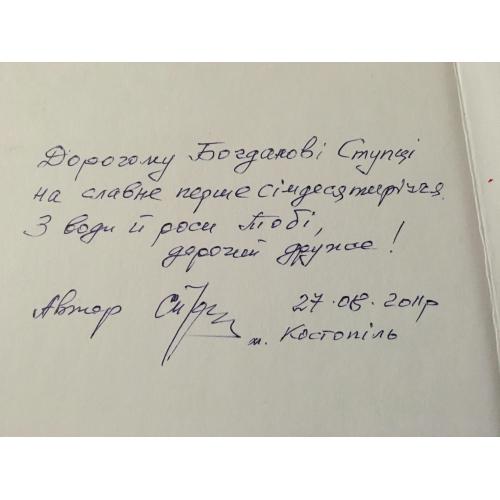 Дорогому Богданові Ступці
на славне перше сімдесятиріччя.
З води й роси Тобі,
дорогий друже!
Автор 27.08.2011р
м. Костопіль